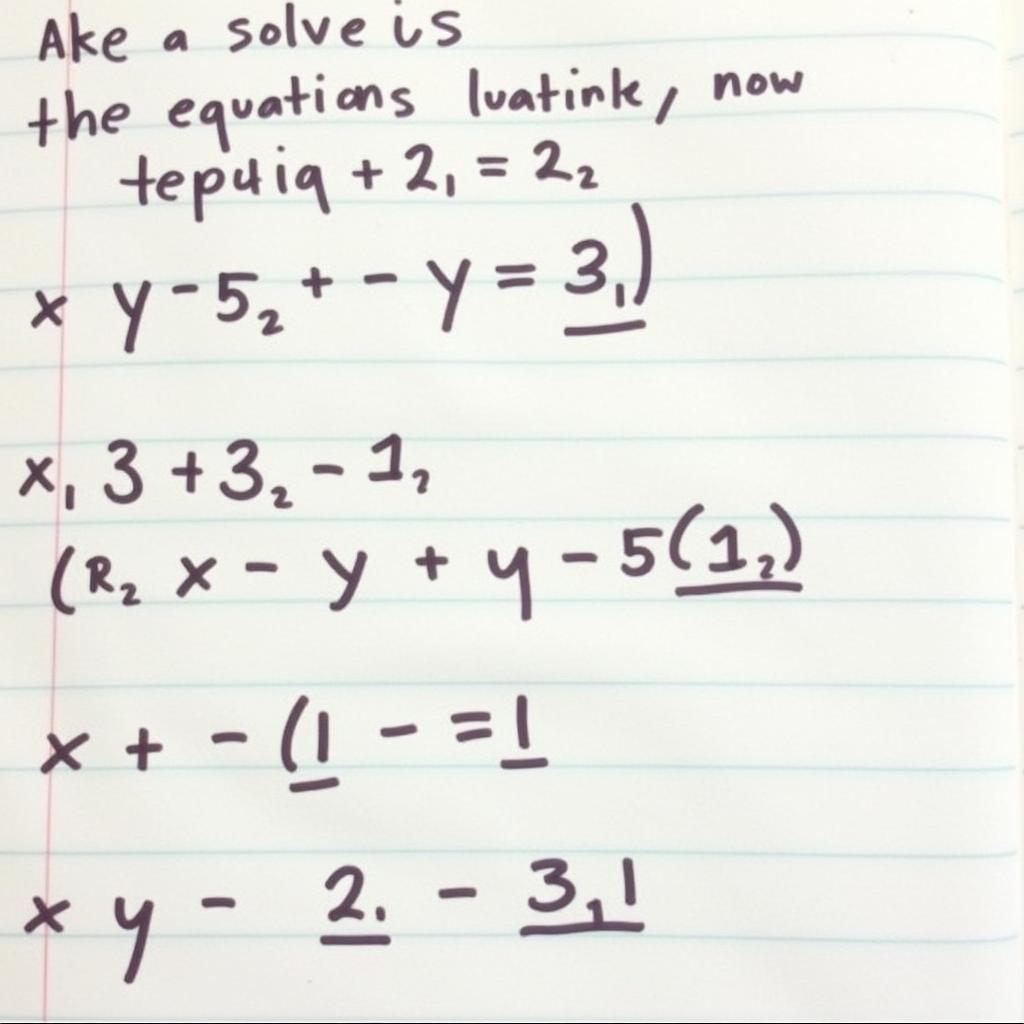 Ake a solve is
the equations luatink, now
tepuiq + 2₁ = 2₂
x y - 5₂ + - y = 3₁)
x₁ 3 + 3₂ - 1₂
(R₂ x - y + y - 5(1₂)
x + - (1 - = 1
x y - 2. - 3₁1